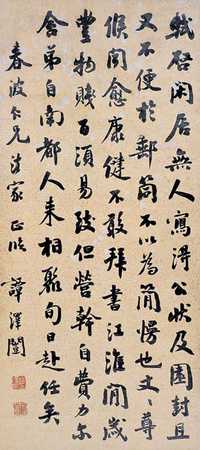 軾啓閑居無人寫得公狀及圓封且
又不便於郵筒不以為簡慢也丈丈尊
候聞愈康健不敢拜書江淮間歲
豐物賤百須易致但營幹自費力尔
舍弟自南都人來相聚旬日赴任矣
春波仁兄法家正臨 譚澤闓